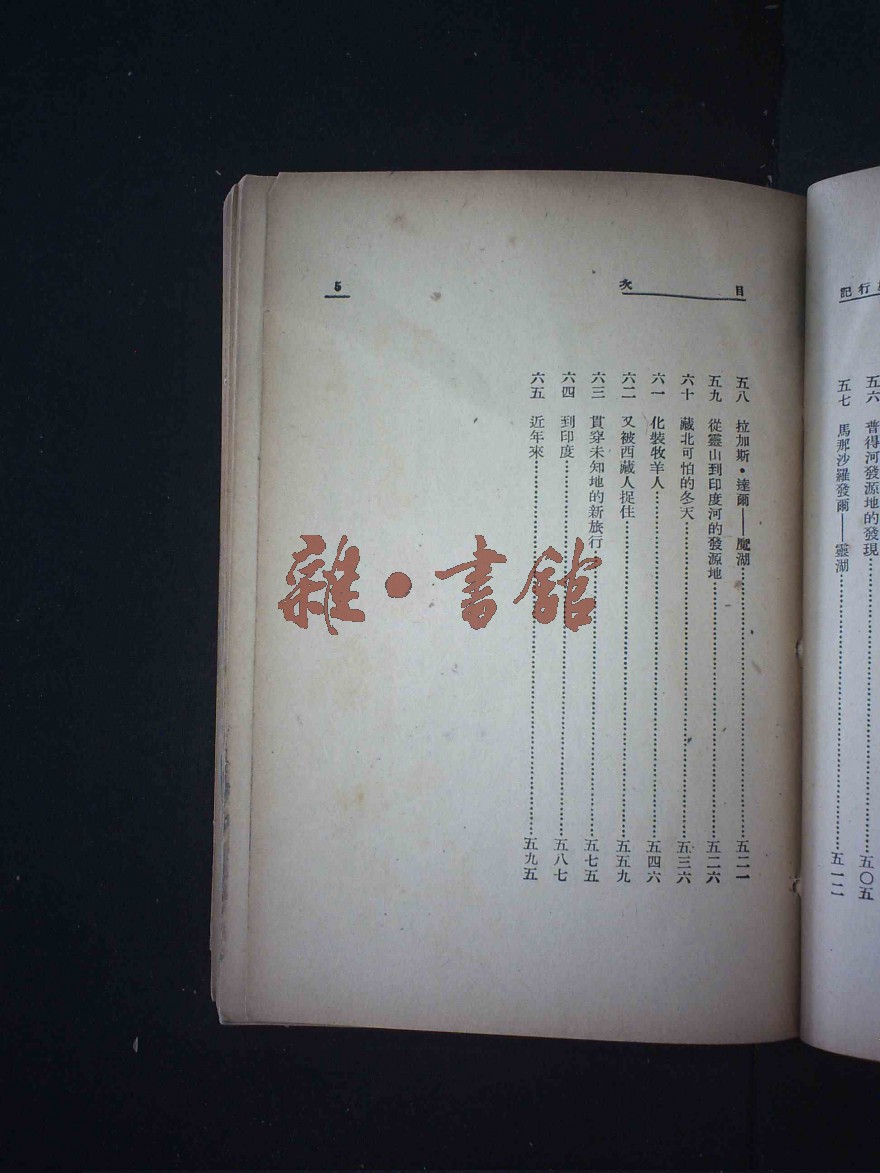 行記
五六　普得河發源地的發現……五〇五
五七　馬那沙羅發爾——靈湖……五一二
目次
5
五八　拉加斯・達爾——魔湖……五二一
五九　從靈山到印度河的發源地……五二六
六十　藏北可怕的冬天……五三六
六一　化裝牧羊人……五四六
六二　又被西藏人捉住……五五九
六三　貫穿未知地的新旅行……五七五
六四　到印度……五八七
六五　近年來……五九五
雜・書館